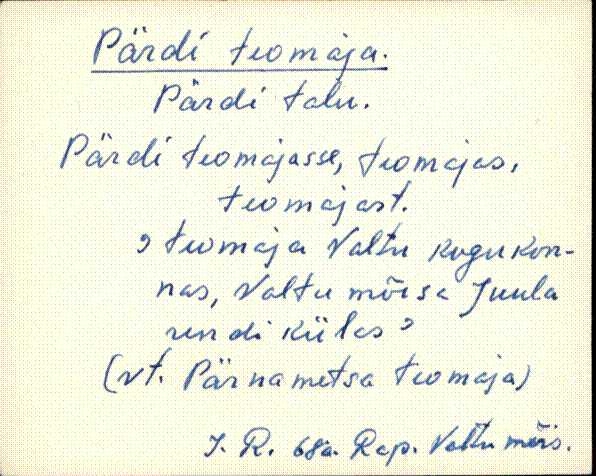 Pärdi teomaja.
Pärdi talu.
Pärdi teomajasse, teomajas,
teomajast.
, teomaja Valtu kogukon-
nas, Valtu mõisa Juula
rendi külas ,
(vt. Pärnametsa teomaja)
J. R. 68a. Rap. Valtu mõis.